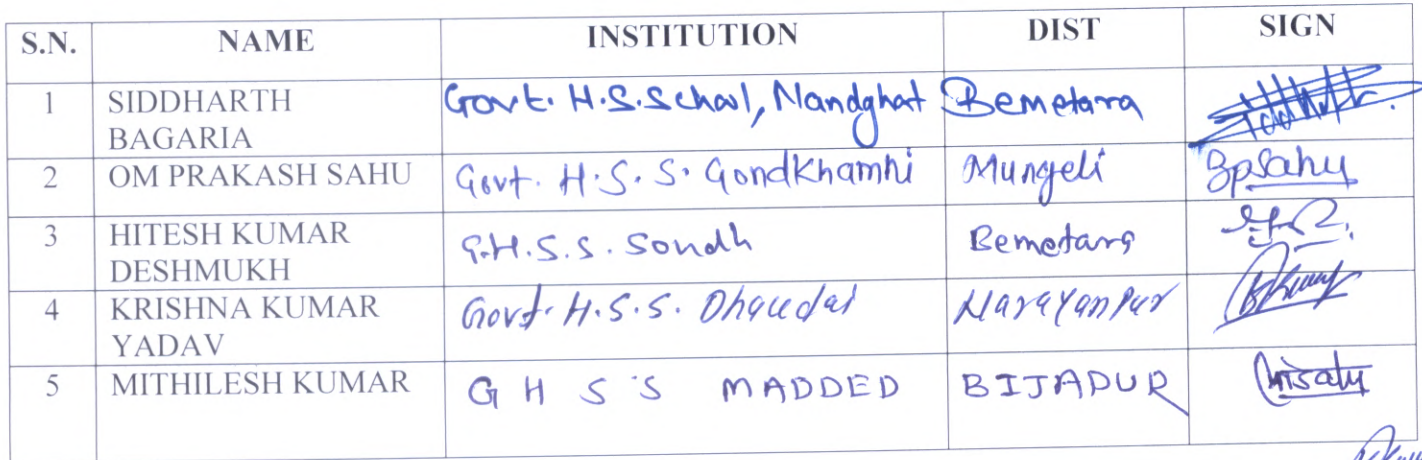 S.N. NAME INSTITUTION DIST SIGN
1 SIDDHARTH Govt. H.S.School, Nandghat Bemetara
BAGARIA
2 OM PRAKASH SAHU Govt. H.S.S. Gondkhamhi Mungeli Opsahu
3 HITESH KUMAR G.H.S.S. Sondh Bemetara
DESHMUKH
4 KRISHNA KUMAR Govt. H.S.S. Dhaudai Narayanpur
YADAV
5 MITHILESH KUMAR G H S S MADDED BIJAPUR